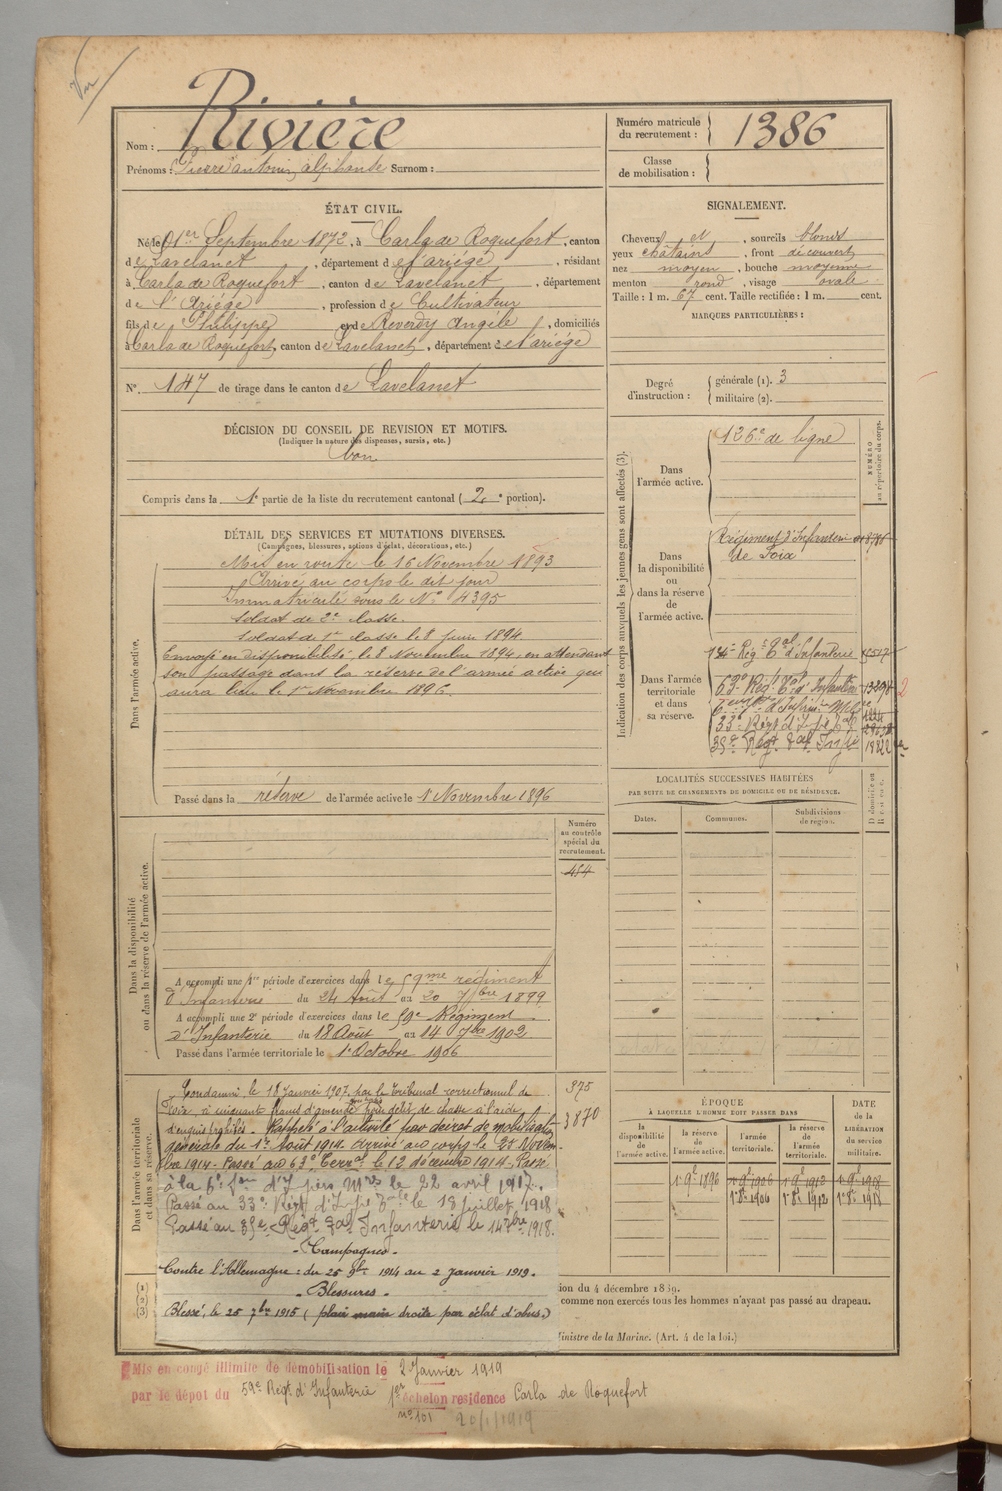 Vu
Nom : Rivière
Prénoms : Pierre antonin alphonse Surnom :
Numéro matricule du recrutement : 1386
Classe de mobilisation :
ÉTAT CIVIL.
Né le 1er Septembre 1872, à Carla de Roquefort, canton
de Lavelanet, département de l'ariége, résidant
à Carla de Roquefort, canton de Lavelanet, département
de l'Ariége, profession de Cultivateur
fils de Philippe et de Reverdy Angèle, domiciliés
à Carla de Roquefort, canton de Lavelanet, département de l'ariége
N° 147 de tirage dans le canton de Lavelanet
SIGNALEMENT.
Cheveux et, sourcils blonds
yeux châtains, front découvert
nez moyen, bouche moyenne
menton rond, visage ovale
Taille : 1 m. 67 cent. Taille rectifiée : 1 m. cent.
MARQUES PARTICULIÈRES :
Degré d'instruction : générale (1). 3
militaire (2).
DÉCISION DU CONSEIL DE REVISION ET MOTIFS.
(Indiquer la nature des dispenses, sursis, etc.)
bon
Compris dans la 1e partie de la liste du recrutement cantonal (2e portion).
DÉTAIL DES SERVICES ET MUTATIONS DIVERSES.
(Campagnes, blessures, actions d'éclat, décorations, etc.)
Dans l'armée active.
Mis en route le 16 Novembre 1893
Arrivé au corps le dit jour
Immatriculé sous le N° 4395
Soldat de 2e classe.
Soldat de 1re classe le 8 juin 1894.
Envoyé en disponibilité le 8 Novembre 1894, en attendant
son passage dans la réserve de l'armée active qui
aura lieu le 1er Novembre 1896.
Passé dans la réserve de l'armée active le 1er Novembre 1896
Indication des corps auxquels les jeunes gens sont affectés (3).
NUMÉRO au répertoire du corps.
Dans l'armée active.
126e de ligne
Dans la disponibilité ou dans la réserve de l'armée active.
Régiment d'Infanterie
de Foix
Dans l'armée territoriale et dans sa réserve.
134e Rég t al d'Infanterie
63e Régt Tal d'Infanterie
33e Régt d'Infie Tale
35e Régt Tal Infie
2
LOCALITÉS SUCCESSIVES HABITÉES
PAR SUITE DE CHANGEMENTS DE DOMICILE OU DE RÉSIDENCE.
Dates. Communes. Subdivisions de région. D domicile ou R résidence.
Dans la disponibilité ou dans la réserve de l'armée active.
Numéro au contrôle spécial du recrutement.
454
A accompli une 1re période d'exercices dans le 59me régiment
d'Infanterie du 24 Août au 20 7bre 1899
A accompli une 2e période d'exercices dans le 59e Régiment
d'Infanterie du 18 Août au 14 7bre 1902
Passé dans l'armée territoriale le 1er Octobre 1906
Dans l'armée territoriale et dans sa réserve.
375
3870
Condamné le 18 Janvier 1907, par le tribunal correctionnel de
Foix, à cinquante francs d'amende pour délit de chasse à l'aide
d'engins prohibés. Rappelé à l'activité par décret de mobilisation
générale du 1er Août 1914. Arrivé au corps le 25 Novem-
bre 1914. Passé au 63e Terral le 12 décembre 1914. Passé
à la 6e d'Infirs Mres le 22 avril 1917.
Passé au 33e Régt d'Infie Tale le 18 juillet 1918
Passé au 35e Régt Tal Infanterie le 14 7bre 1918.
- Campagnes -
Contre l'Allemagne : du 25 9bre 1914 au 2 Janvier 1919.
- Blessures -
Blessé, le 25 7bre 1915 (plaie main droite par éclat d'obus.)
ÉPOQUE
À LAQUELLE L'HOMME DOIT PASSER DANS
la disponibilité de l'armée active. la réserve de l'armée active. l'armée territoriale. la réserve de l'armée territoriale.
DATE de la LIBÉRATION du service militaire.
1er 9e 1896 1er 9e 1906 1er 9e 1912 1er 9e 1918
1er 8e 1906 1er 8e 1912 1er 8e 1918
(1)
(2)
(3)
ion du 4 décembre 1889.
comme non exercés tous les hommes n'ayant pas passé au drapeau.
Ministre de la Marine. (Art. 4 de la loi.)
Mis en congé illimité de démobilisation le 2 Janvier 1919
par le dépôt du 59e Régt d'Infanterie 1er échelon residence Carla de Roquefort
n° 101 20/1/1919